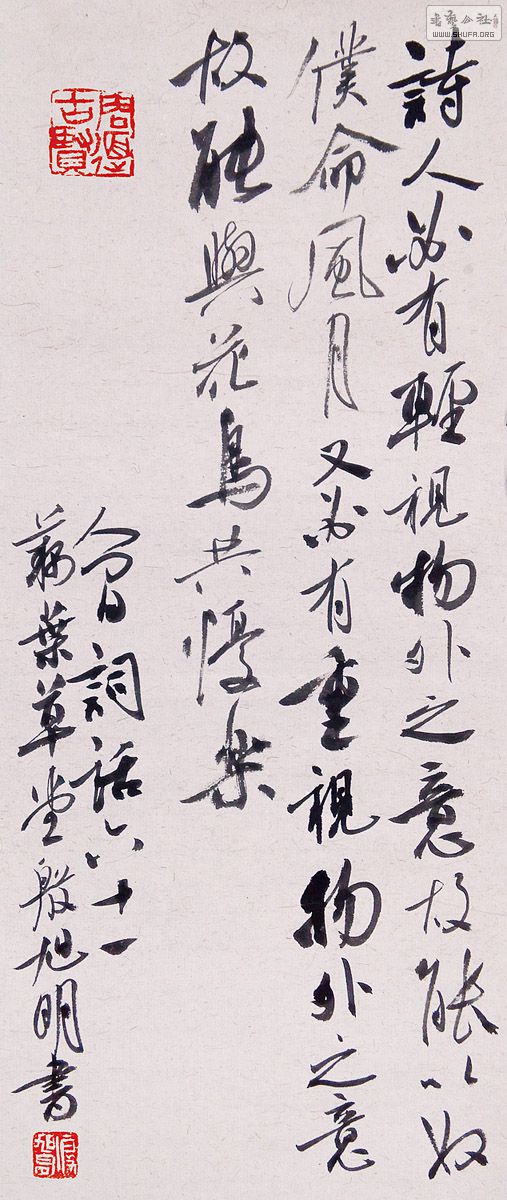 書藝公社
WWW.SHUFA.ORG
詩人必有輕視物外之意故能以奴
僕命風月又必有重視物外之意
故能與花鳥共懮樂
人间詞話六十一
藕葉草堂殷旭明書
古賢